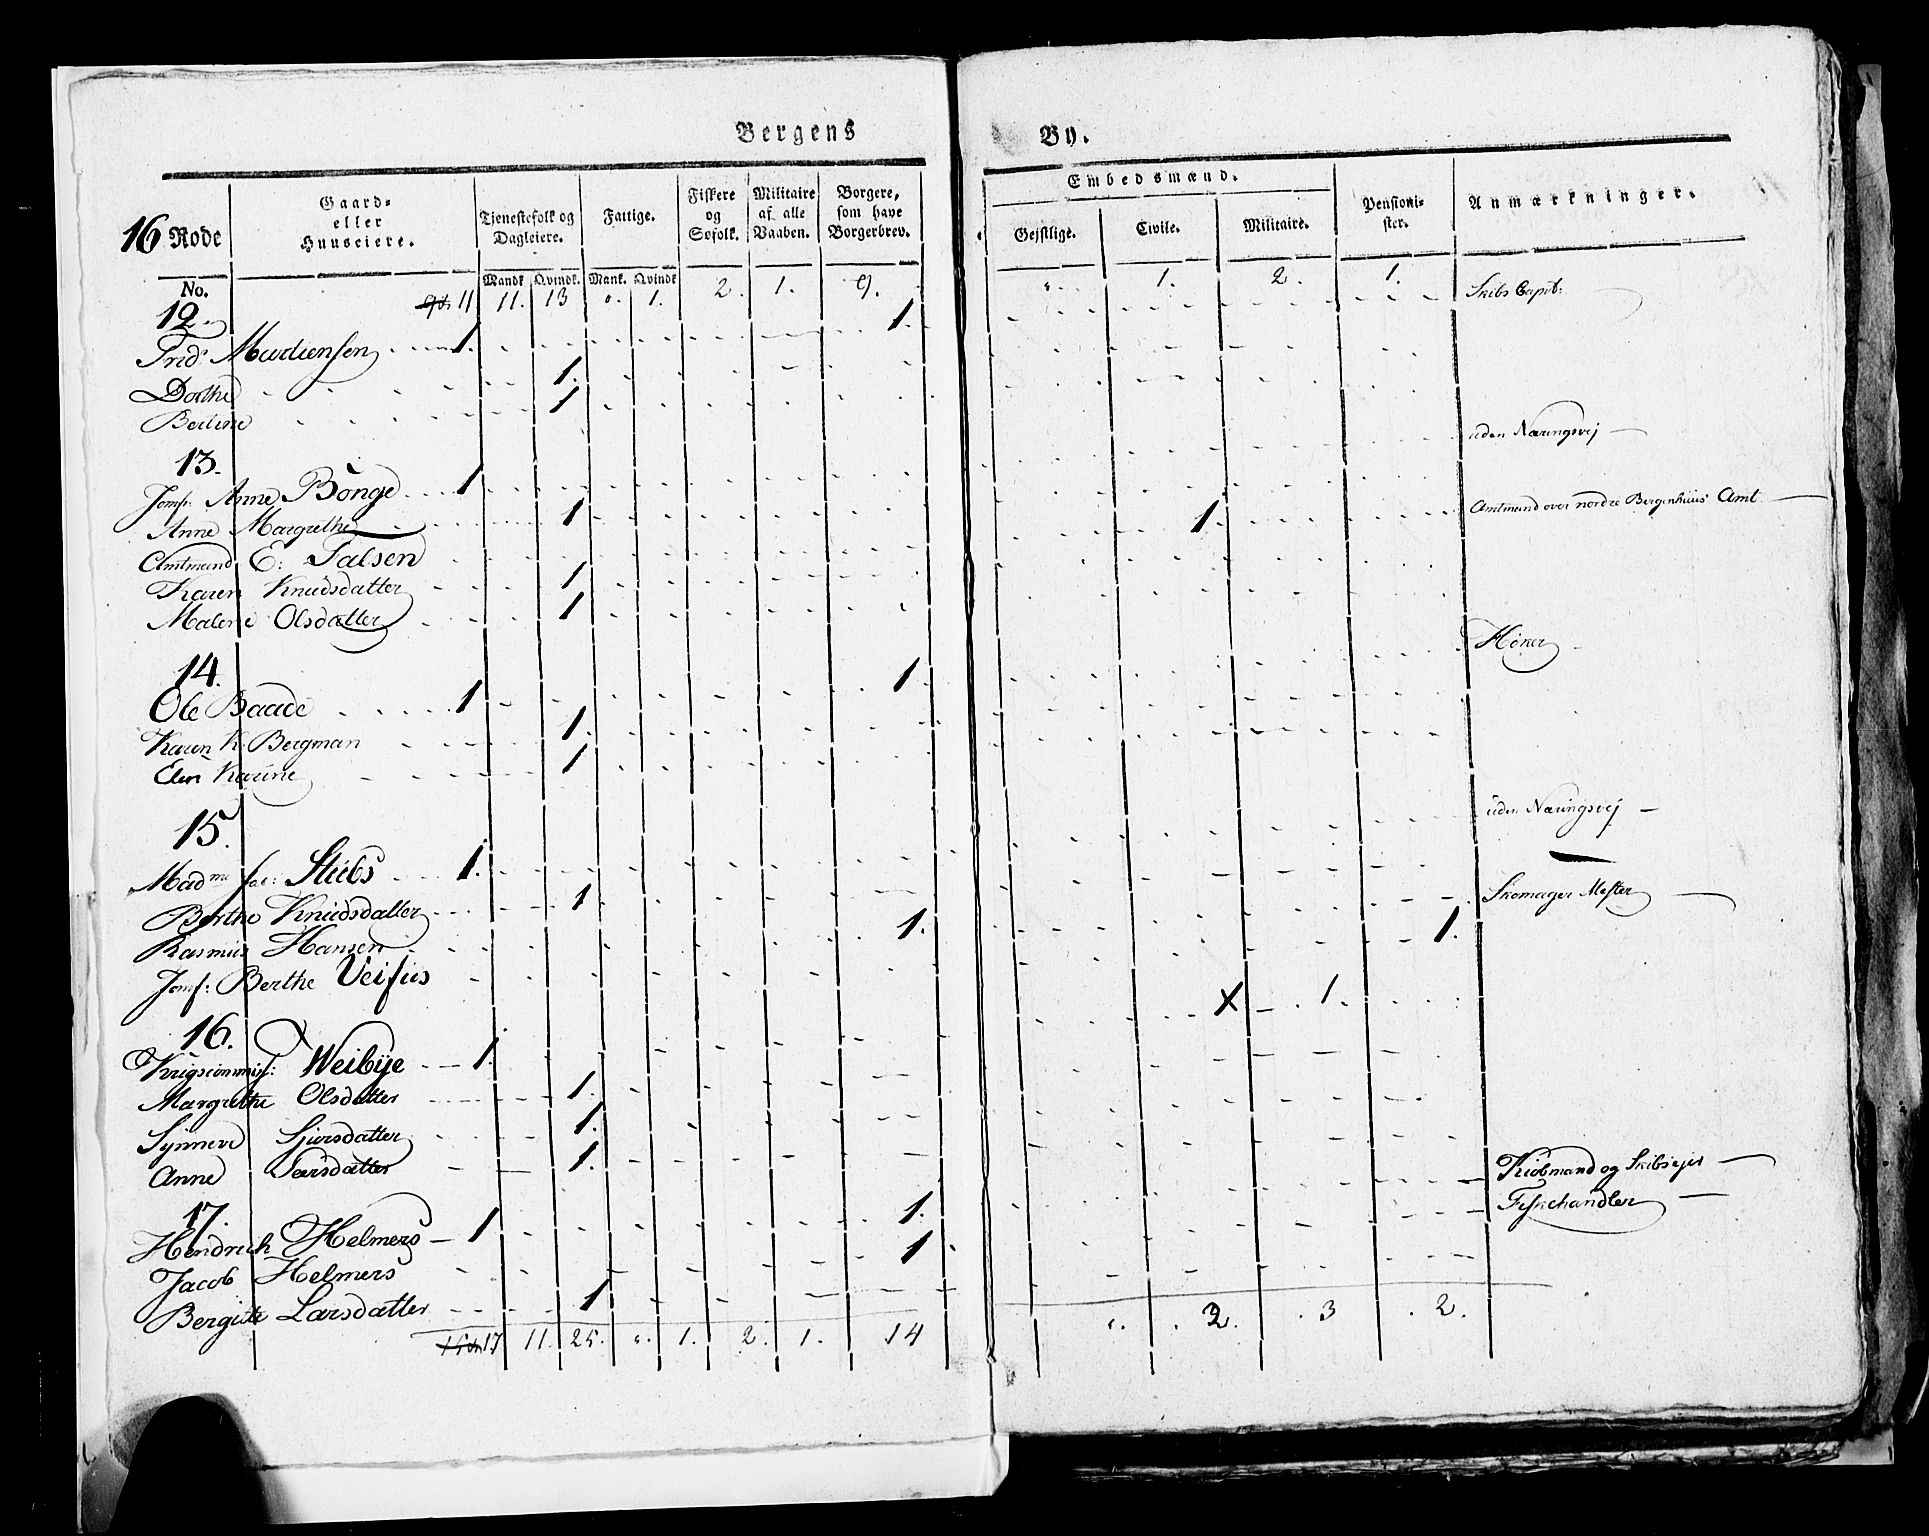 Bergens By.
16 Rode
Gaard-
eller
Huuseiere.
Tjenestefolk og
Dagleiere.
Fattige.
Fiskere
og
Søfolk.
Militaire
af alle
Vaaben.
Borgere,
som have
Borgerbrev.
Embedsmænd.
Gejstlige. Civile. Militaire.
Pensioni-
ster.
Anmærkninger.
No. Mandk Qvindk. Mank. Qvindk
11 11. 13 1. 2. 1. 9. 1. 2. 1.
12 1. Skibs Capit:
Frid. Martiensen 1.
Dorthe 1.
Bertine 1
13. uden Næringsvej
Jomf: Anne Bönge 1
Anne Margrethe 1 1. Amtmand over nordre Bergenhuus Amt
Amtmand E: Falsen
Karen Knudsdatter 1
Malene Olsdatter 1
14. 1. Höker
Ole Baade 1
Karen K. Bergman 1.
Elen Karine 1
15. uden Næringsvej
Madme Stubs 1.
Berthe Knudsdatter 1 Skomager Mester
Rasmus Hansen 1. 1.
Jomf: Berthe Veisus
16. X 1.
Krigscommis: Weibye 1.
Margrethe Olsdatter 1.
Synneve Sjursdatter 1.
Anne Larsdatter 1. Kiøbmand og Skibsejer
17. 1. Fiskehandler
Hendrich Helmers 1 1
Jacob Helmers
Bergitte Larsdatter 1
17 11. 25. 1. 2. 1. 14 2. 3 2.